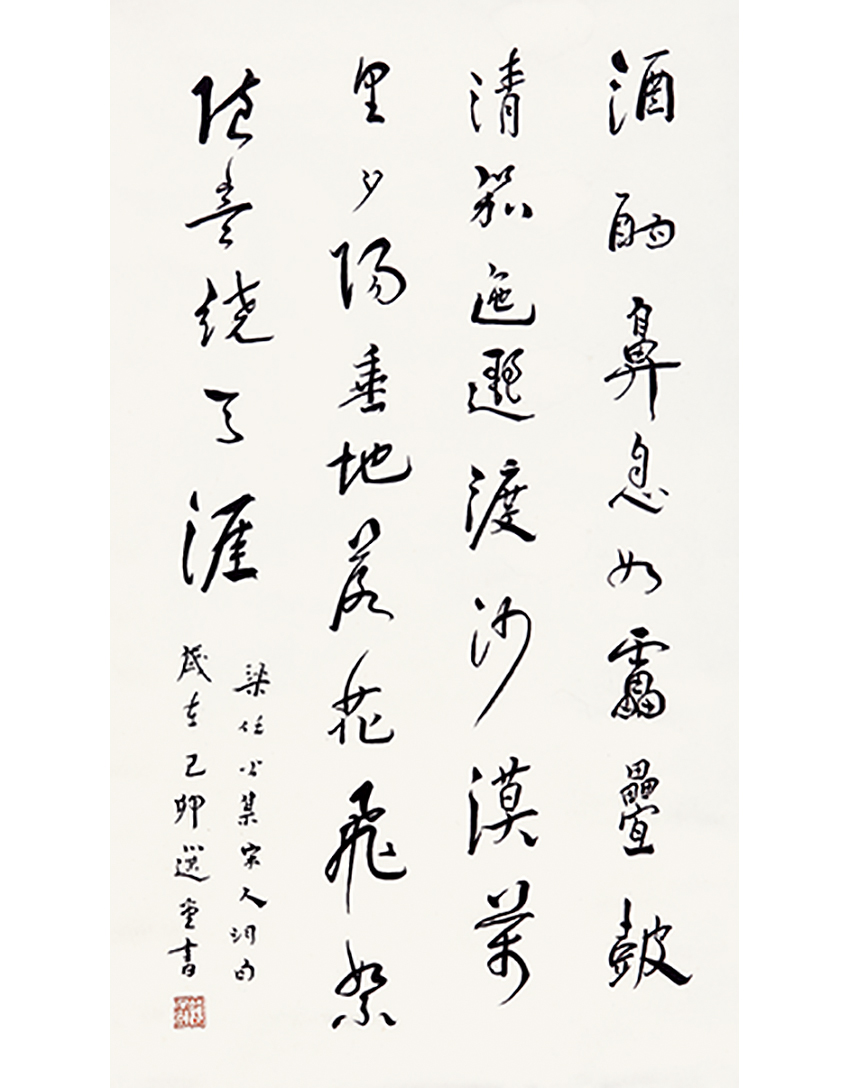 酒酣鼻息如靁疊鼓
清笳迤邐渡沙漠萬
里夕陽垂地落花飛絮
隨意繞天涯
梁任公集宋人詞句
歲在己卯選堂書